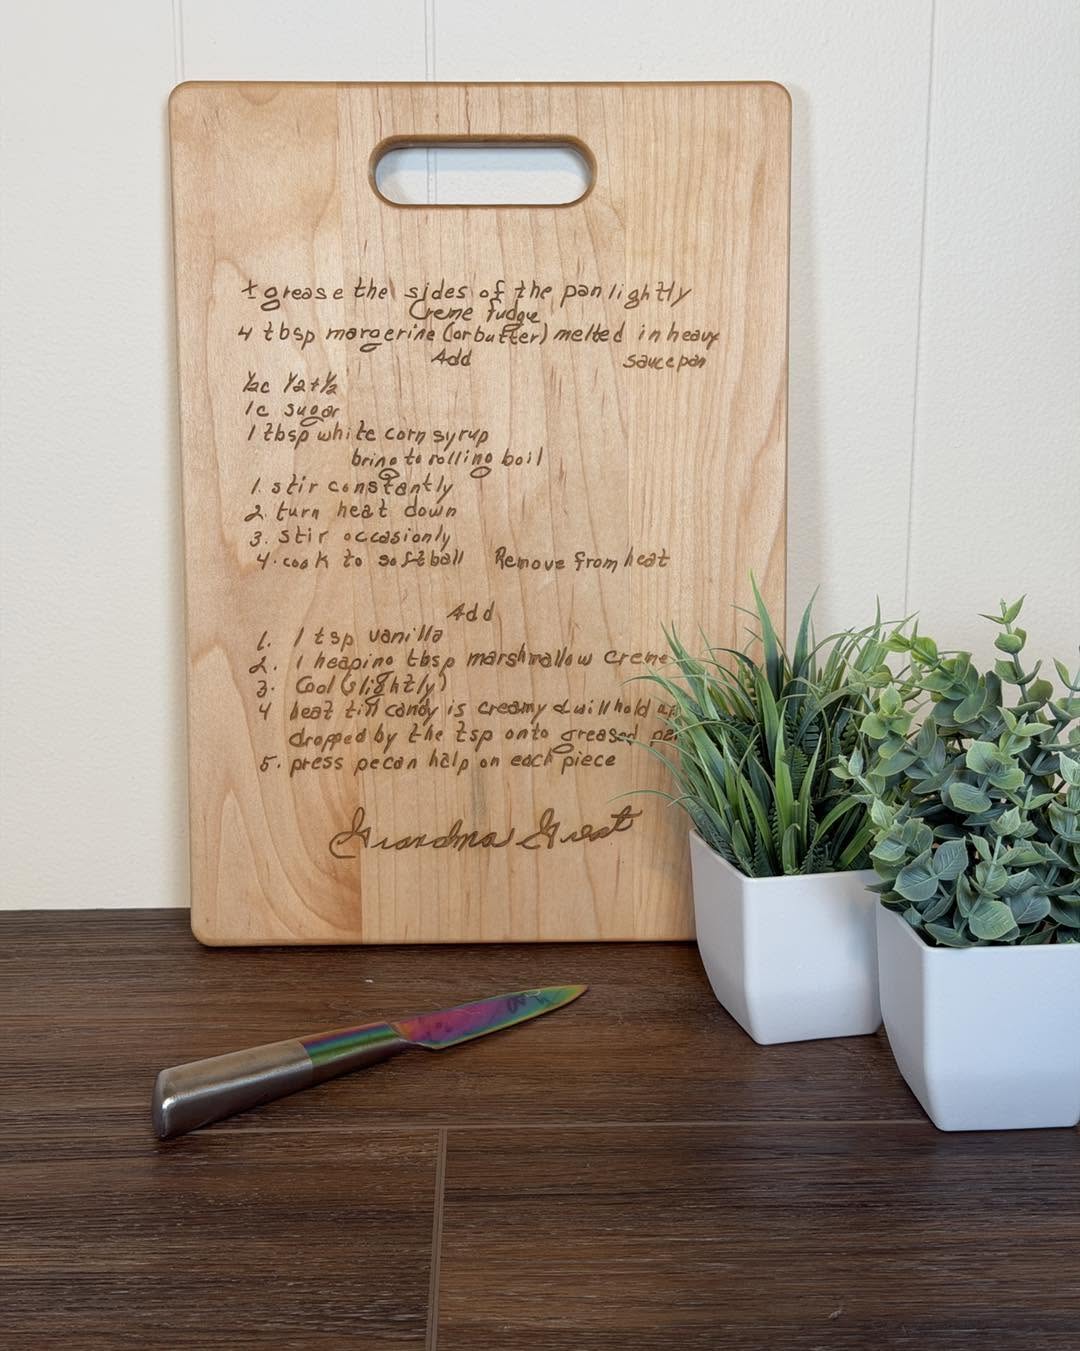 ± grease the sides of the pan lightly
Creme fudge
4 tbsp margerine (or butter) melted in heavy
Add saucepan
½c ½+½
1c sugar
1 tbsp white corn syrup
bring to rolling boil
1. stir constantly
2. turn heat down
3. stir occasionly
4. cook to softball Remove from heat
Add
1. 1 tsp vanilla
2. 1 heaping tbsp marshmallow creme
3. Cool (slightly)
4 beat till candy is creamy & will hold
dropped by the tsp onto greased
5. press pecan halp on each piece
Grandma Great